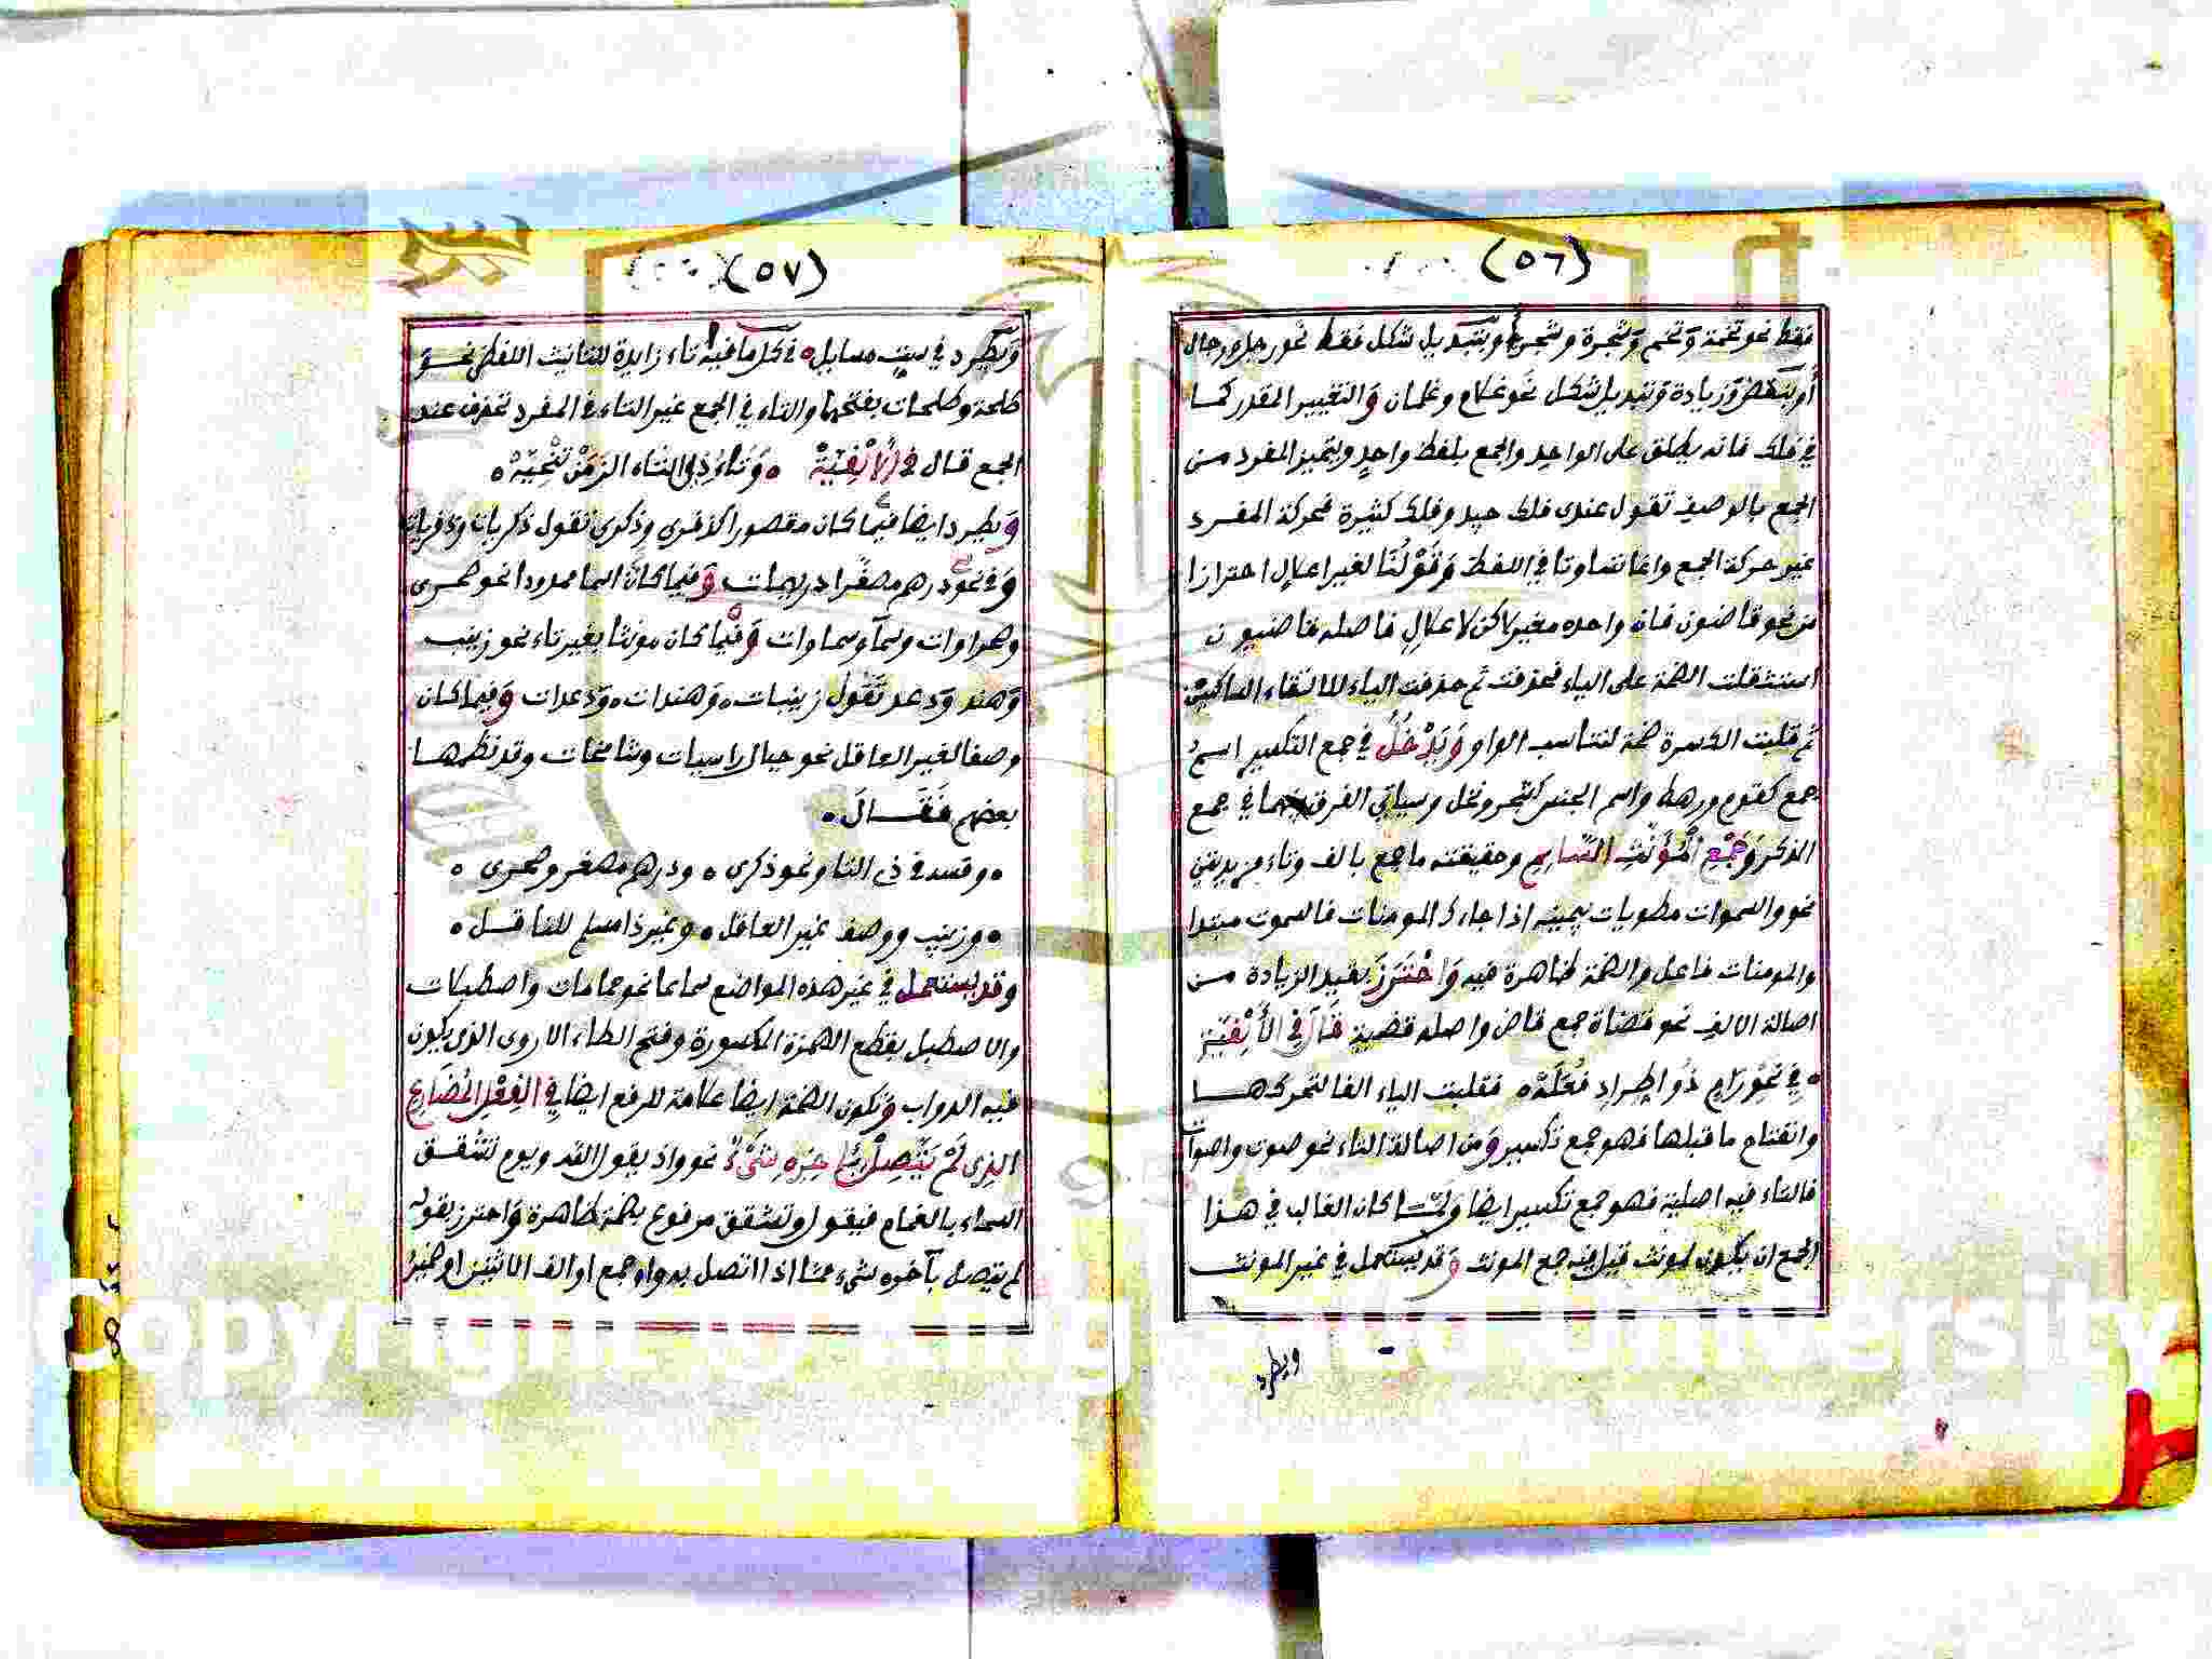 (٥٦)
فقط نحو تخمة وَتخم وَشجرة وشجر وبتبديل شكل فقط نحو رجل ورجال
أو بنقص وَزيادة وَتبديل شكل نحو غلام وغلمان وَالتغيير المقدر كما
في فلك فانه يطلق على الواحد والجمع بلفظ واحدٍ ويتميز المفرد من
الجمع بالوصف تقول عندى فلك جيد وفلك كثيرة فحركة المفرد
غير حركة الجمع وانما تساوتا في اللفظ وَقَوْلُنَا لغير اعلال احترازا
من نحو قاضون فان واحده مغير لاكن لاعلالٍ فاصله قاضيون
استثقلت الضمة على الياء فحذفت ثم حذفت الياء لالتقاء الساكنين
ثم قلبت الكسرة ضمة لتناسب الواو وَيَدْخُلُ في جمع التكسير اسم
جمع كقوم ورهط واسم الجنس كشجر ونخل وسياتي الفرق بينهما في جمع
المذكر وَجَمْعِ الْمُؤَنَّثِ السَّالِمِ وحقيقته ما جمع بالف وتاء مزيدتين
نحو والسموات مطويات بيمينه اذا جاءك المومنات فالسموت مبتدا
والمومنات فاعل والضمة ظاهرة فيه وَاحْتَرَزَ بقيد الزيادة من
اصالة الالف نحو قضاة جمع قاض واصله قضية قَالَ فِي الأَلْفِيَّةِ
في نَحْوِ رَامٍ ذُو اطِّرادٍ فُعَلَهْ فقلبت الياء الفا لتحركها
وانفتاح ما قبلها فهو جمع تكسير وَمن اصالة التاء نحو صوت واصوات
فالتاء فيه اصلية فهو جمع تكسير ايضا وَلمّا كان الغالب في هذا
الجمع ان يكون لمونث قيل فيه جمع المونث وَقد يستعمل في غير المونث
ويطرد
(٥٧)
وَيطّرد في ستٍ مسايل في كل ما فيه تاء زايدة للتانيث اللفظي نحو
طلحة وطلحات بفتحها والتاء في الجمع غير التاء في المفرد تحذف عند
الجمع قال في الأَلْفِيَّةْ وَتَاءَ ذِي التاء الزمَنْ تَنْحِيَهْ
وَيطرد ايضا فيما كان مقصورا كذفرى وذكرى تقول ذكريات وذفريات
وَفي نحو درهم مصغرا دريهمات وَفيما كان اسما ممدودا نحو صحرى
وصحراوات وسمآ وسماوات وَفيما كان مونثا بغير تاء نحو زينب
وَهند وَدعد تَقُول زينبات وَهندات وَدعدات وَفيما كان
وصفا لغير العاقل نحو جبال راسيات وشامخات وقد نظمها
بعضهم فَقَــالَ
وقسه في ذى التا ونحو ذكرى ودرهم مصغر وصحرى
وزينب ووصف غير العاقل وغير ذا مسلم للناقل
وقد يستعمل في غير هذه المواضع سماعا نحو حمامات واصطبلات
والاصطبل بقطع الهمزة المكسورة وفتح الطاء الاروى الذى يكون
فيه الدواب وَتكون الضمة ايضا علامة للرفع ايضا فِي الْفِعْلِ الْمُضَارِعِ
الذِى لَمْ يَتَّصِلْ بِآخِرِهِ شَىْءٌ نحو واذ يقول لقد ويوم تشقق
السماء بالغمام فيقول وتشقق مرفوع بضمة ظاهرة وَاحترز بقوله
لم يتصل بآخره شيء مما اذا اتصل به واو جمع او الف الاثنين او ضمير
Copyright © King University